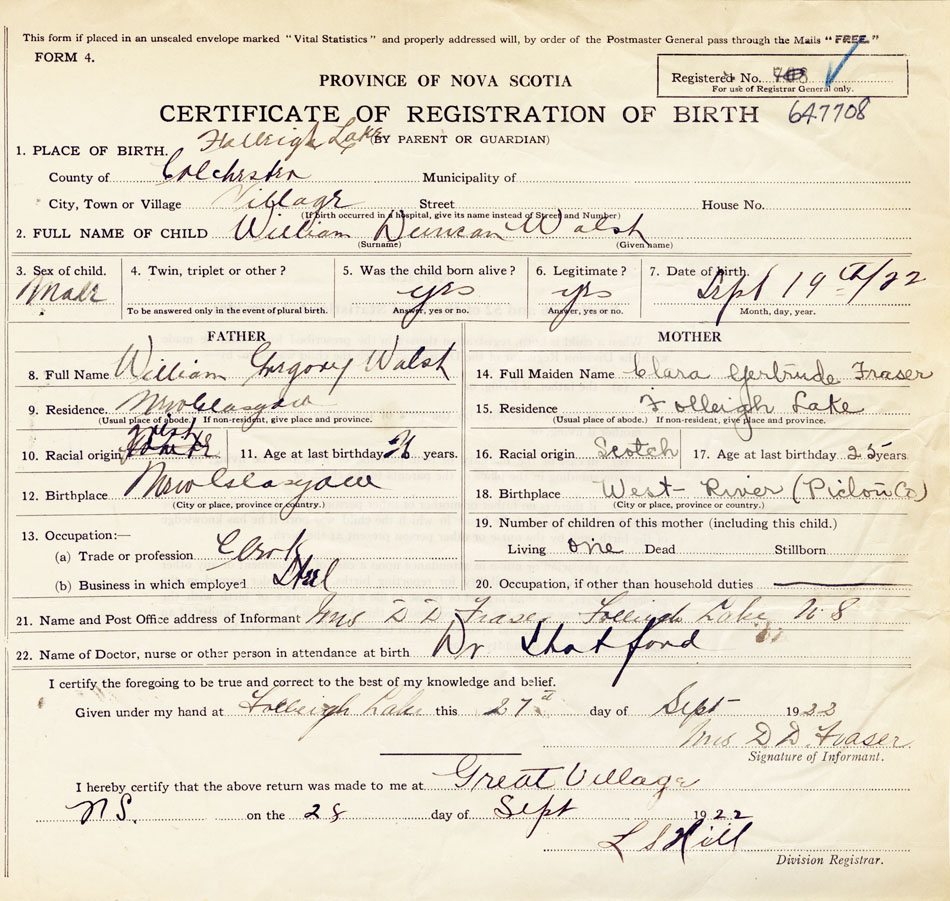 This form if placed in an unsealed envelope marked "Vital Statistics" and properly addressed will, by order of the Postmaster General pass through the Mails "FREE."
FORM 4.
Registered No. 708
For use of Registrar General only.
PROVINCE OF NOVA SCOTIA
CERTIFICATE OF REGISTRATION OF BIRTH 647708
(BY PARENT OR GUARDIAN)
1. PLACE OF BIRTH. Folleigh Lake
County of Colchester Municipality of
City, Town or Village Village Street House No.
(If birth occurred in a hospital, give its name instead of Street and Number)
2. FULL NAME OF CHILD William Duncan Walsh
(Surname) (Given name)
3. Sex of child. 4. Twin, triplet or other? 5. Was the child born alive? 6. Legitimate? 7. Date of birth.
Male yes yes Sept 19th/22
To be answered only in the event of plural birth. Answer, yes or no. Answer, yes or no. Month, day, year.
FATHER MOTHER
8. Full Name William Gregory Walsh 14. Full Maiden Name Clara Gertrude Fraser
9. Residence. New Glasgow 15. Residence Folleigh Lake
(Usual place of abode.) If non-resident, give place and province. (Usual place of abode.) If non-resident, give place and province.
10. Racial origin Irish 11. Age at last birthday 26 years. 16. Racial origin Scotch 17. Age at last birthday 25 years.
12. Birthplace New Glasgow 18. Birthplace West River (Pictou Co)
(City or place, province or country.) (City or place, province or country.)
13. Occupation:— 19. Number of children of this mother (including this child.)
(a) Trade or profession Clerk Living one Dead Stillborn
(b) Business in which employed Steel 20. Occupation, if other than household duties
21. Name and Post Office address of Informant Mrs D D Fraser Folleigh Lake N S
22. Name of Doctor, nurse or other person in attendance at birth Dr Shatford
I certify the foregoing to be true and correct to the best of my knowledge and belief.
Given under my hand at Folleigh Lake this 27th day of Sept 1922
Mrs D D. Fraser
Signature of Informant.
I hereby certify that the above return was made to me at Great Village
N S. on the 28 day of Sept 1922
L S Hill
Division Registrar.